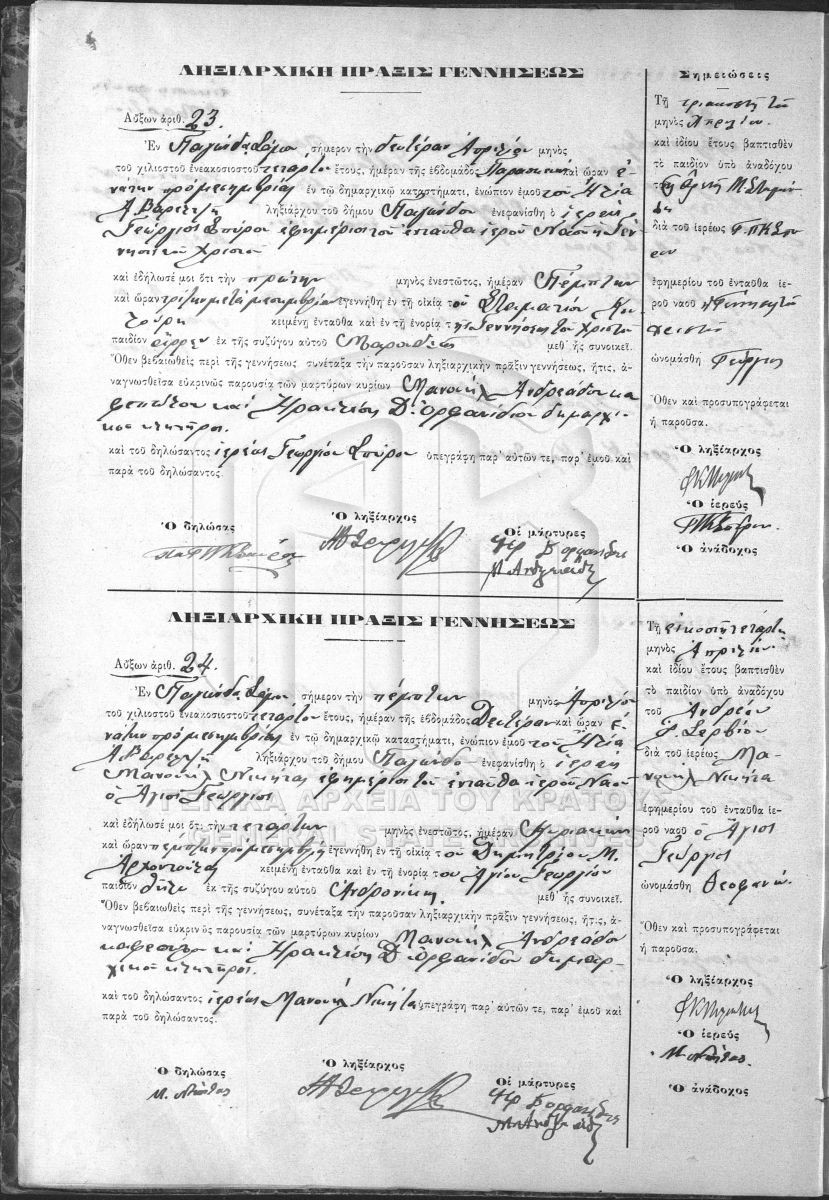 ΛΗΞΙΑΡΧΙΚΗ ΠΡΑΞΙΣ ΓΕΝΝΗΣΕΩΣ
Αὔξων ἀριθ. 23.
Ἐν Παγώνδα Σάμου σήμερον τὴν δευτέραν Ἀπριλίου μηνὸς
τοῦ χιλιοστοῦ ἐνεακοσιοστοῦ τετάρτου ἔτους, ἡμέραν τῆς ἑβδομάδος Παρασκευὴ καὶ ὥραν ἐ-
νάτην πρὸ μεσημβρίας ἐν τῷ δημαρχικῷ καταστήματι, ἐνώπιον ἐμοῦ τοῦ Ἠλία
Α. ληξιάρχου τοῦ δήμου Παγώνδου ἐνεφανίσθη ὁ ἱερεὺς
Γεώργιος Σπύρου ἐφημέριος τοῦ ἐνταῦθα ἱεροῦ Ναοῦ ἡ Γέν-
νησις τοῦ Χριστοῦ
καὶ ἐδήλωσέ μοι ὅτι τὴν πρώτην μηνὸς ἐνεστῶτος, ἡμέραν Πέμπτην
καὶ ὥραν τρίτην μετὰ μεσημβρίαν ἐγεννήθη ἐν τῇ οἰκίᾳ τοῦ Σταματίου
κειμένῃ ἐνταῦθα καὶ ἐν τῇ ἐνορίᾳ τῆς Γεννήσεως τοῦ Χριστοῦ
παιδίον ἄρρεν ἐκ τῆς συζύγου αὐτοῦ μεθ᾽ ἧς συνοικεῖ.
Ὅθεν βεβαιωθεὶς περὶ τῆς γεννήσεως συνέταξα τὴν παροῦσαν ληξιαρχικὴν πρᾶξιν γεννήσεως, ἥτις, ἀ-
ναγνωσθεῖσα εὐκρινῶς παρουσίᾳ τῶν μαρτύρων κυρίων Μανουὴλ Ἀνδρεάδου κα
φεπώλου καὶ Ἡρακλέους Δ. Ὀρφανίδου δημαρχι-
κοῦ κλητῆρος.
καὶ τοῦ δηλώσαντος ἱερέως Γεωργίου Σπύρου ὑπεγράφη παρ᾽ αὐτῶν τε, παρ᾽ ἐμοῦ καὶ
παρὰ τοῦ δηλώσαντος.
Ὁ δηλώσας
Ὁ ληξίαρχος
Οἱ μάρτυρες
Σημειώσεις
Τῇ τριακοστῇ τοῦ
μηνὸς Ἀπριλίου
καὶ ἰδίου ἔτους βαπτισθὲν
τὸ παιδίον ὑπὸ ἀναδόχου
διὰ τοῦ ἱερέως Γ. Π. Κ. Σπύ
ρου
ἐφημερίου τοῦ ἐνταῦθα ἱε-
ροῦ ναοῦ ἡ Γέννησις τοῦ
Χριστοῦ
ὠνομάσθη Γεώργιος
Ὅθεν καὶ προσυπογράφεται
ἡ παροῦσα.
Ὁ ληξίαρχος
Ὁ ἱερεὺς
Ὁ ἀνάδοχος
ΛΗΞΙΑΡΧΙΚΗ ΠΡΑΞΙΣ ΓΕΝΝΗΣΕΩΣ
Αὔξων ἀριθ. 24.
Ἐν Παγώνδα Σάμου σήμερον τὴν πέμπτην μηνὸς Ἀπριλίου
τοῦ χιλιοστοῦ ἐνεακοσιοστοῦ τετάρτου ἔτους, ἡμέραν τῆς ἑβδομάδος Δευτέραν καὶ ὥραν ἐ-
νάτην πρὸ μεσημβρίας ἐν τῷ δημαρχικῷ καταστήματι, ἐνώπιον ἐμοῦ τοῦ Ἠλία
Α. ληξιάρχου τοῦ δήμου Παγώνδου ἐνεφανίσθη ὁ ἱερεὺς
Μανουὴλ Νικήτας ἐφημέριος τοῦ ἐνταῦθα ἱεροῦ Ναοῦ
ὁ Ἅγιος Γεώργιος
καὶ ἐδήλωσέ μοι ὅτι τὴν τετάρτην μηνὸς ἐνεστῶτος, ἡμέραν Κυριακὴν
καὶ ὥραν πέμπτην πρὸ μεσημβρίας ἐγεννήθη ἐν τῇ οἰκίᾳ τοῦ Δημητρίου Μ.
κειμένῃ ἐνταῦθα καὶ ἐν τῇ ἐνορίᾳ τοῦ Ἁγίου Γεωργίου
παιδίον θῆλυ ἐκ τῆς συζύγου αὐτοῦ Ἀνδρονίκης μεθ᾽ ἧς συνοικεῖ.
Ὅθεν βεβαιωθεὶς περὶ τῆς γεννήσεως, συνέταξα τὴν παροῦσαν ληξιαρχικὴν πρᾶξιν γεννήσεως, ἥτις, ἀ-
ναγνωσθεῖσα εὐκρινῶς παρουσίᾳ τῶν μαρτύρων κυρίων Μανουὴλ Ἀνδρεάδου
καφεπώλου καὶ Ἡρακλέους Δ. Ὀρφανίδου δημαρ-
χικοῦ κλητῆρος.
καὶ τοῦ δηλώσαντος ἱερέως Μανουὴλ Νικήτα ὑπεγράφη παρ᾽ αὐτῶν τε, παρ᾽ ἐμοῦ καὶ
παρὰ τοῦ δηλώσαντος.
Ὁ δηλώσας
Μ. Νικήτας
Ὁ ληξίαρχος
Οἱ μάρτυρες
Τῇ εἰκοστῇ τετάρτῃ
μηνὸς Ἀπριλίου
καὶ ἰδίου ἔτους βαπτισθὲν
τὸ παιδίον ὑπὸ ἀναδόχου
τοῦ Ἀνδρέου
Σερβίου
διὰ τοῦ ἱερέως Μα
νουὴλ Νικήτα
ἐφημερίου τοῦ ἐνταῦθα ἱε-
ροῦ ναοῦ ὁ Ἅγιος
Γεώργιος
ὠνομάσθη Θεοφανώ.
Ὅθεν καὶ προσυπογράφεται
ἡ παροῦσα.
Ὁ ληξίαρχος
Ὁ ἱερεὺς
Μ. Νικήτας.
Ὁ ἀνάδοχος
ΓΕΝΙΚΑ ΑΡΧΕΙΑ ΤΟΥ ΚΡΑΤΟΥΣ
GENERAL STATE ARCHIVES